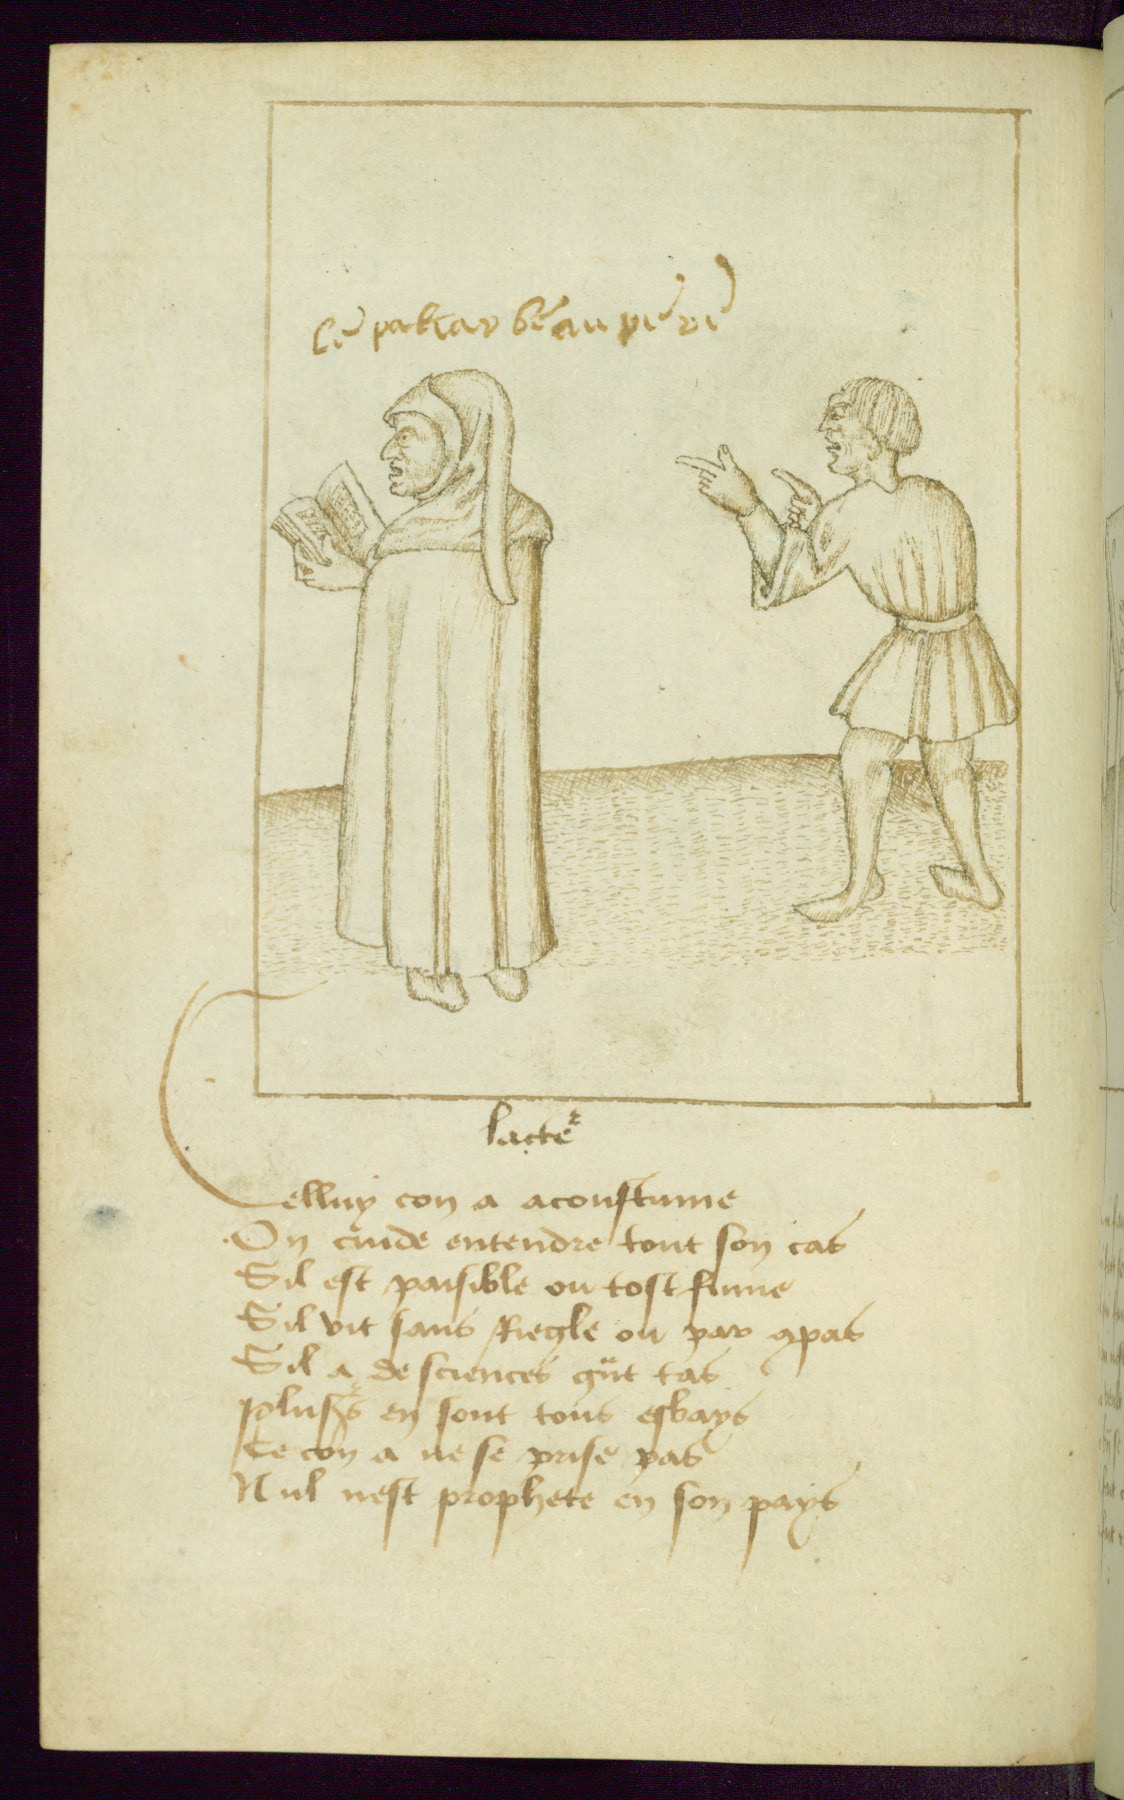 lacte
Celluy con a acoustume
On cuide entendre tout son cas
Sil est paisible ou tost fume
Sil vit sans Riegle ou par apas
Sil a de sciences gnt tas
en sont tous esbays
Ce con a ne se prise pas
Nul nest prophete en son pays